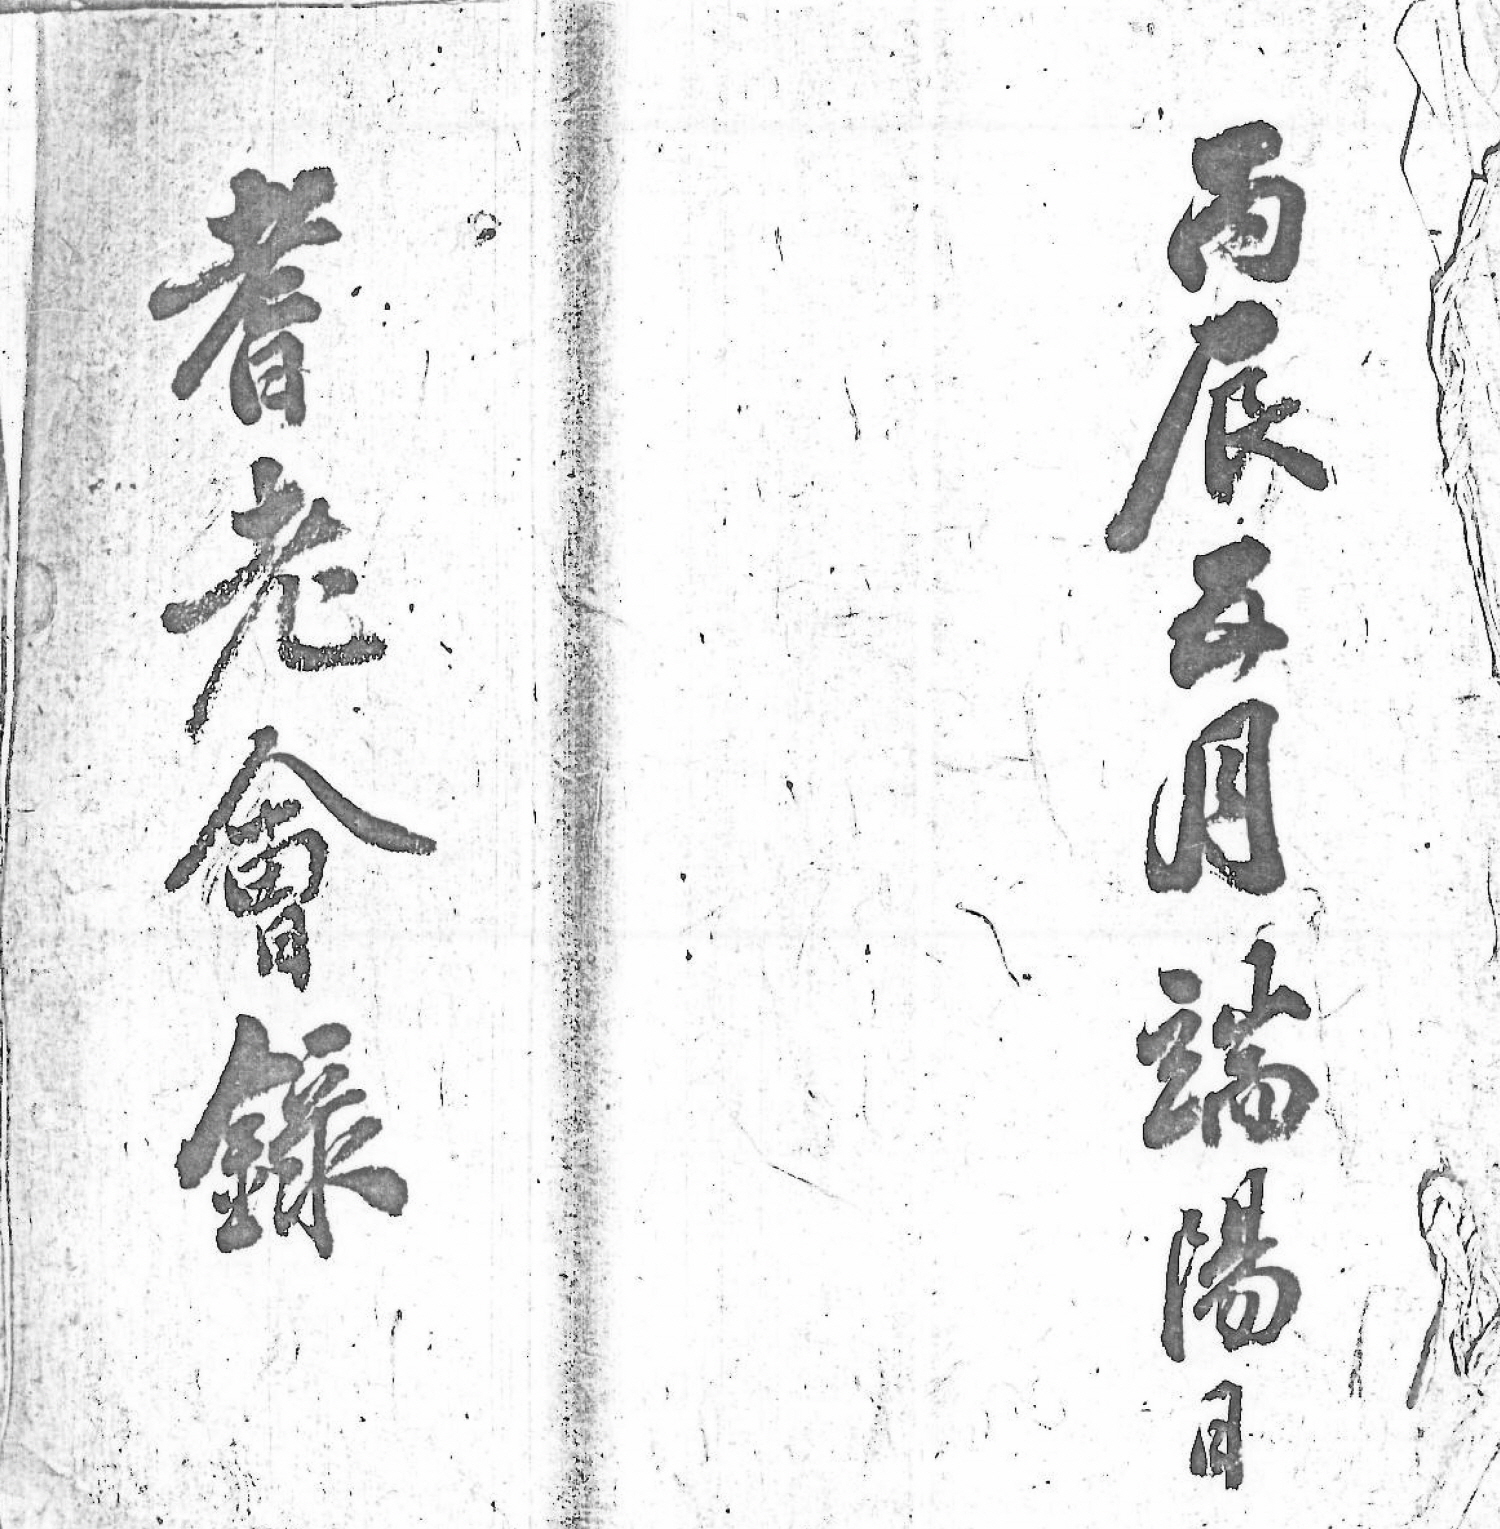 丙辰五月端陽日
耆老會錄